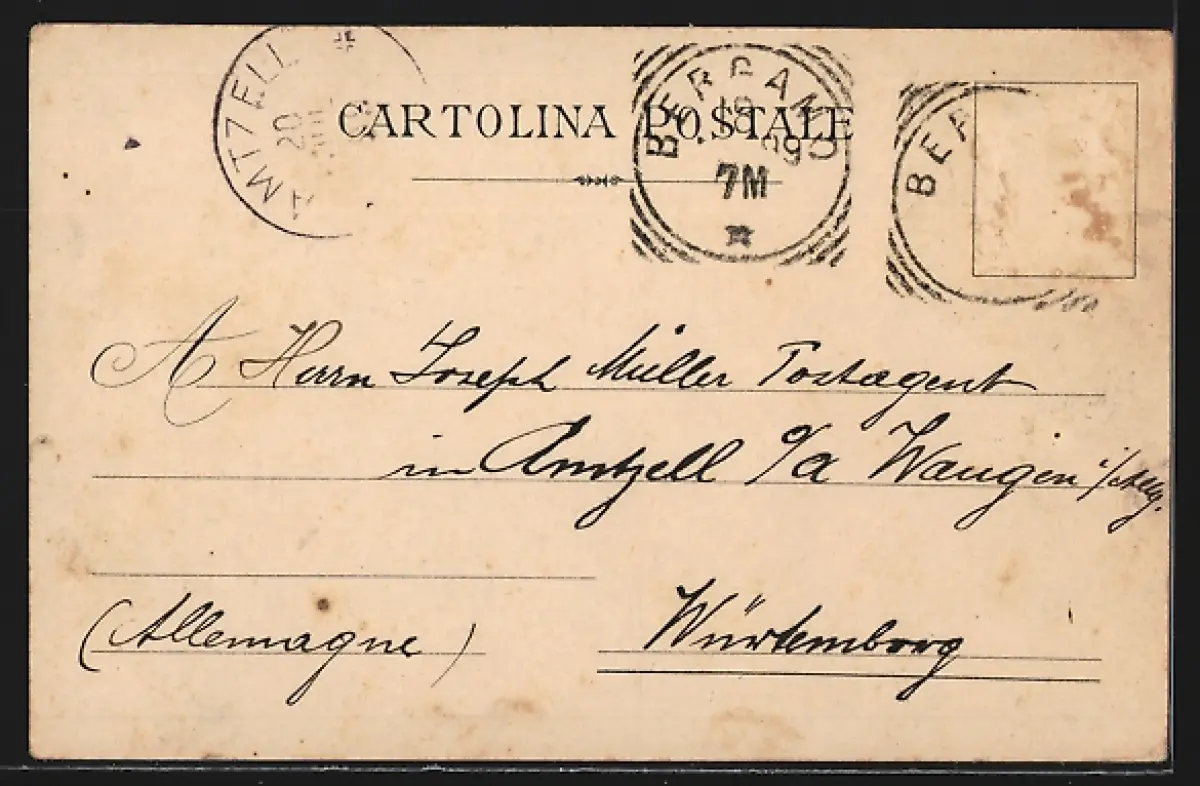 AMTZELL
20
CARTOLINA POSTALE
BERGAMO
18
99
7M
BER
A Herrn Joseph Müller Postagent
in Amtzell o/a Wangen i/Allg.
(Allemagne)
Würtemberg